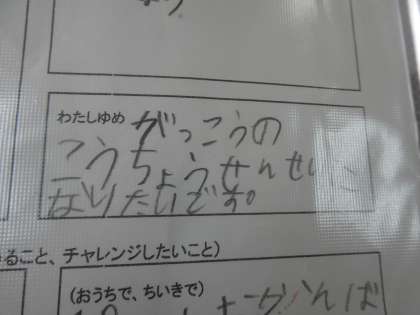 わたしゆめ がっこうの
こうちょうせんせいに
なりたいです。
ること、チャレンジしたいこと)
(おうちで、ちいきで)
がんば